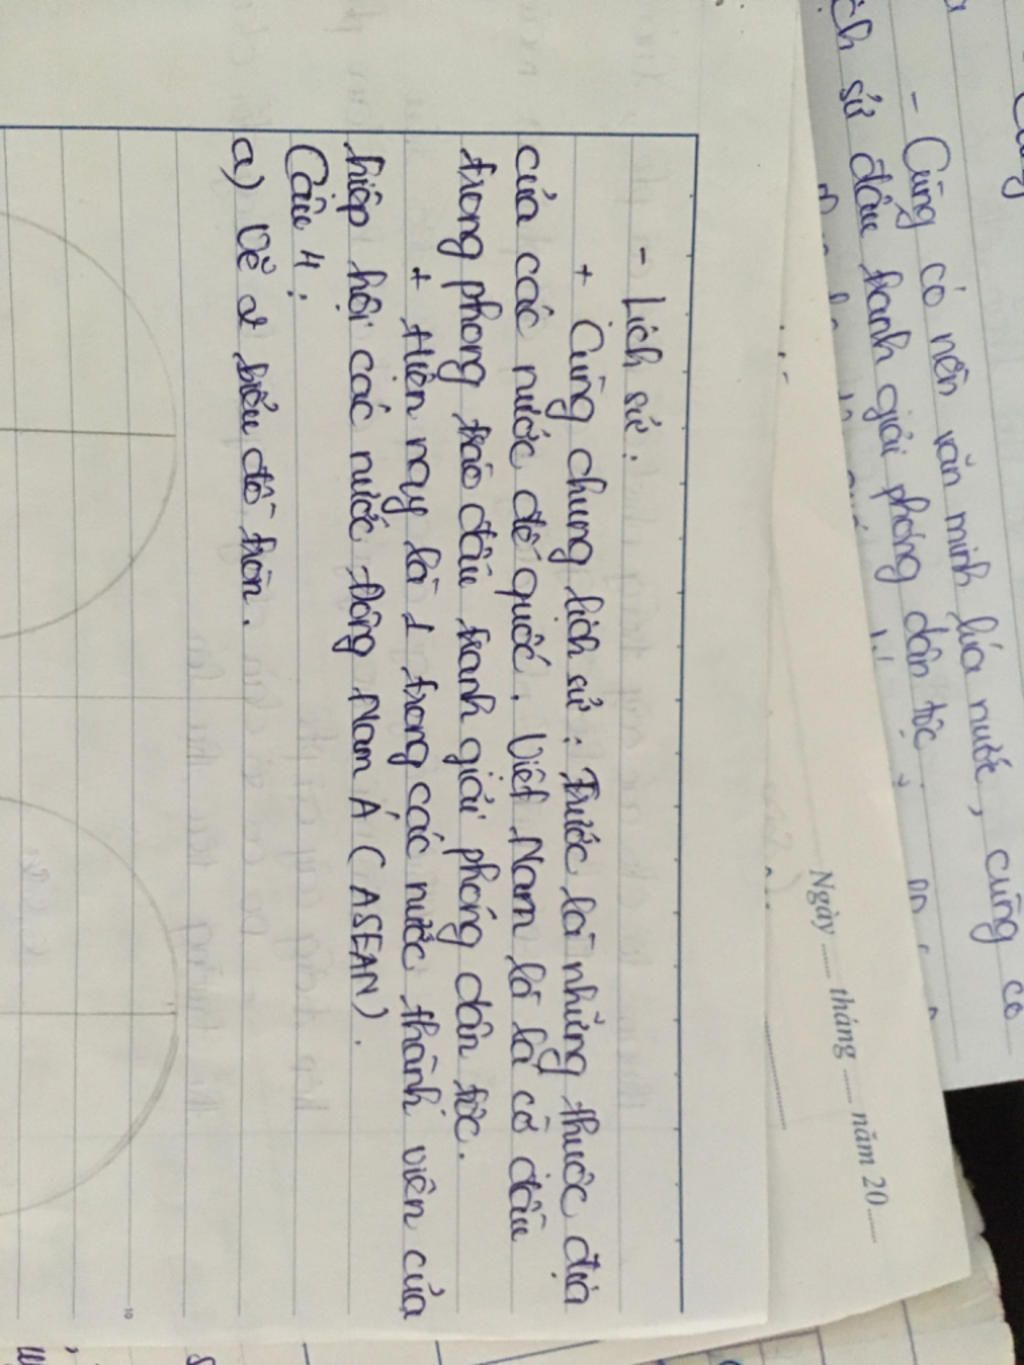 - Cũng có nền văn minh lúa nước, cũng có
lịch sử đấu tranh giải phóng dân tộc.
Ngày tháng năm 20
- Lịch sử:
+ Cùng chung lịch sử: Trước là những thuộc địa
của các nước đế quốc. Việt Nam là lá cờ đầu
trong phong trào đấu tranh giải phóng dân tộc.
+ Hiện nay là 1 trong các nước thành viên của
hiệp hội các nước Đông Nam Á (ASEAN).
Câu 4:
a) Vẽ 2 biểu đồ tròn.